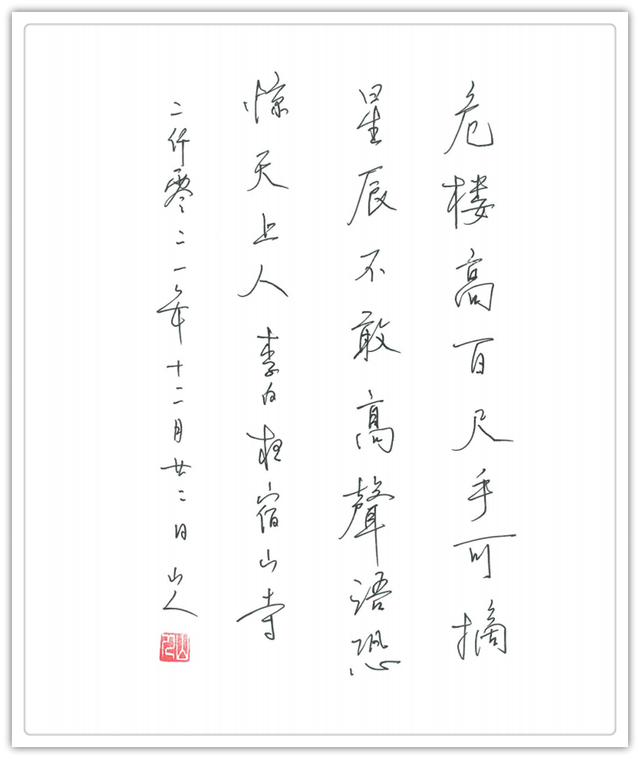 危楼高百尺手可摘
星辰不敢高聲语恐
惊天上人 李白夜宿山寺
二仟零二一年十二月廿二日 山人
山人